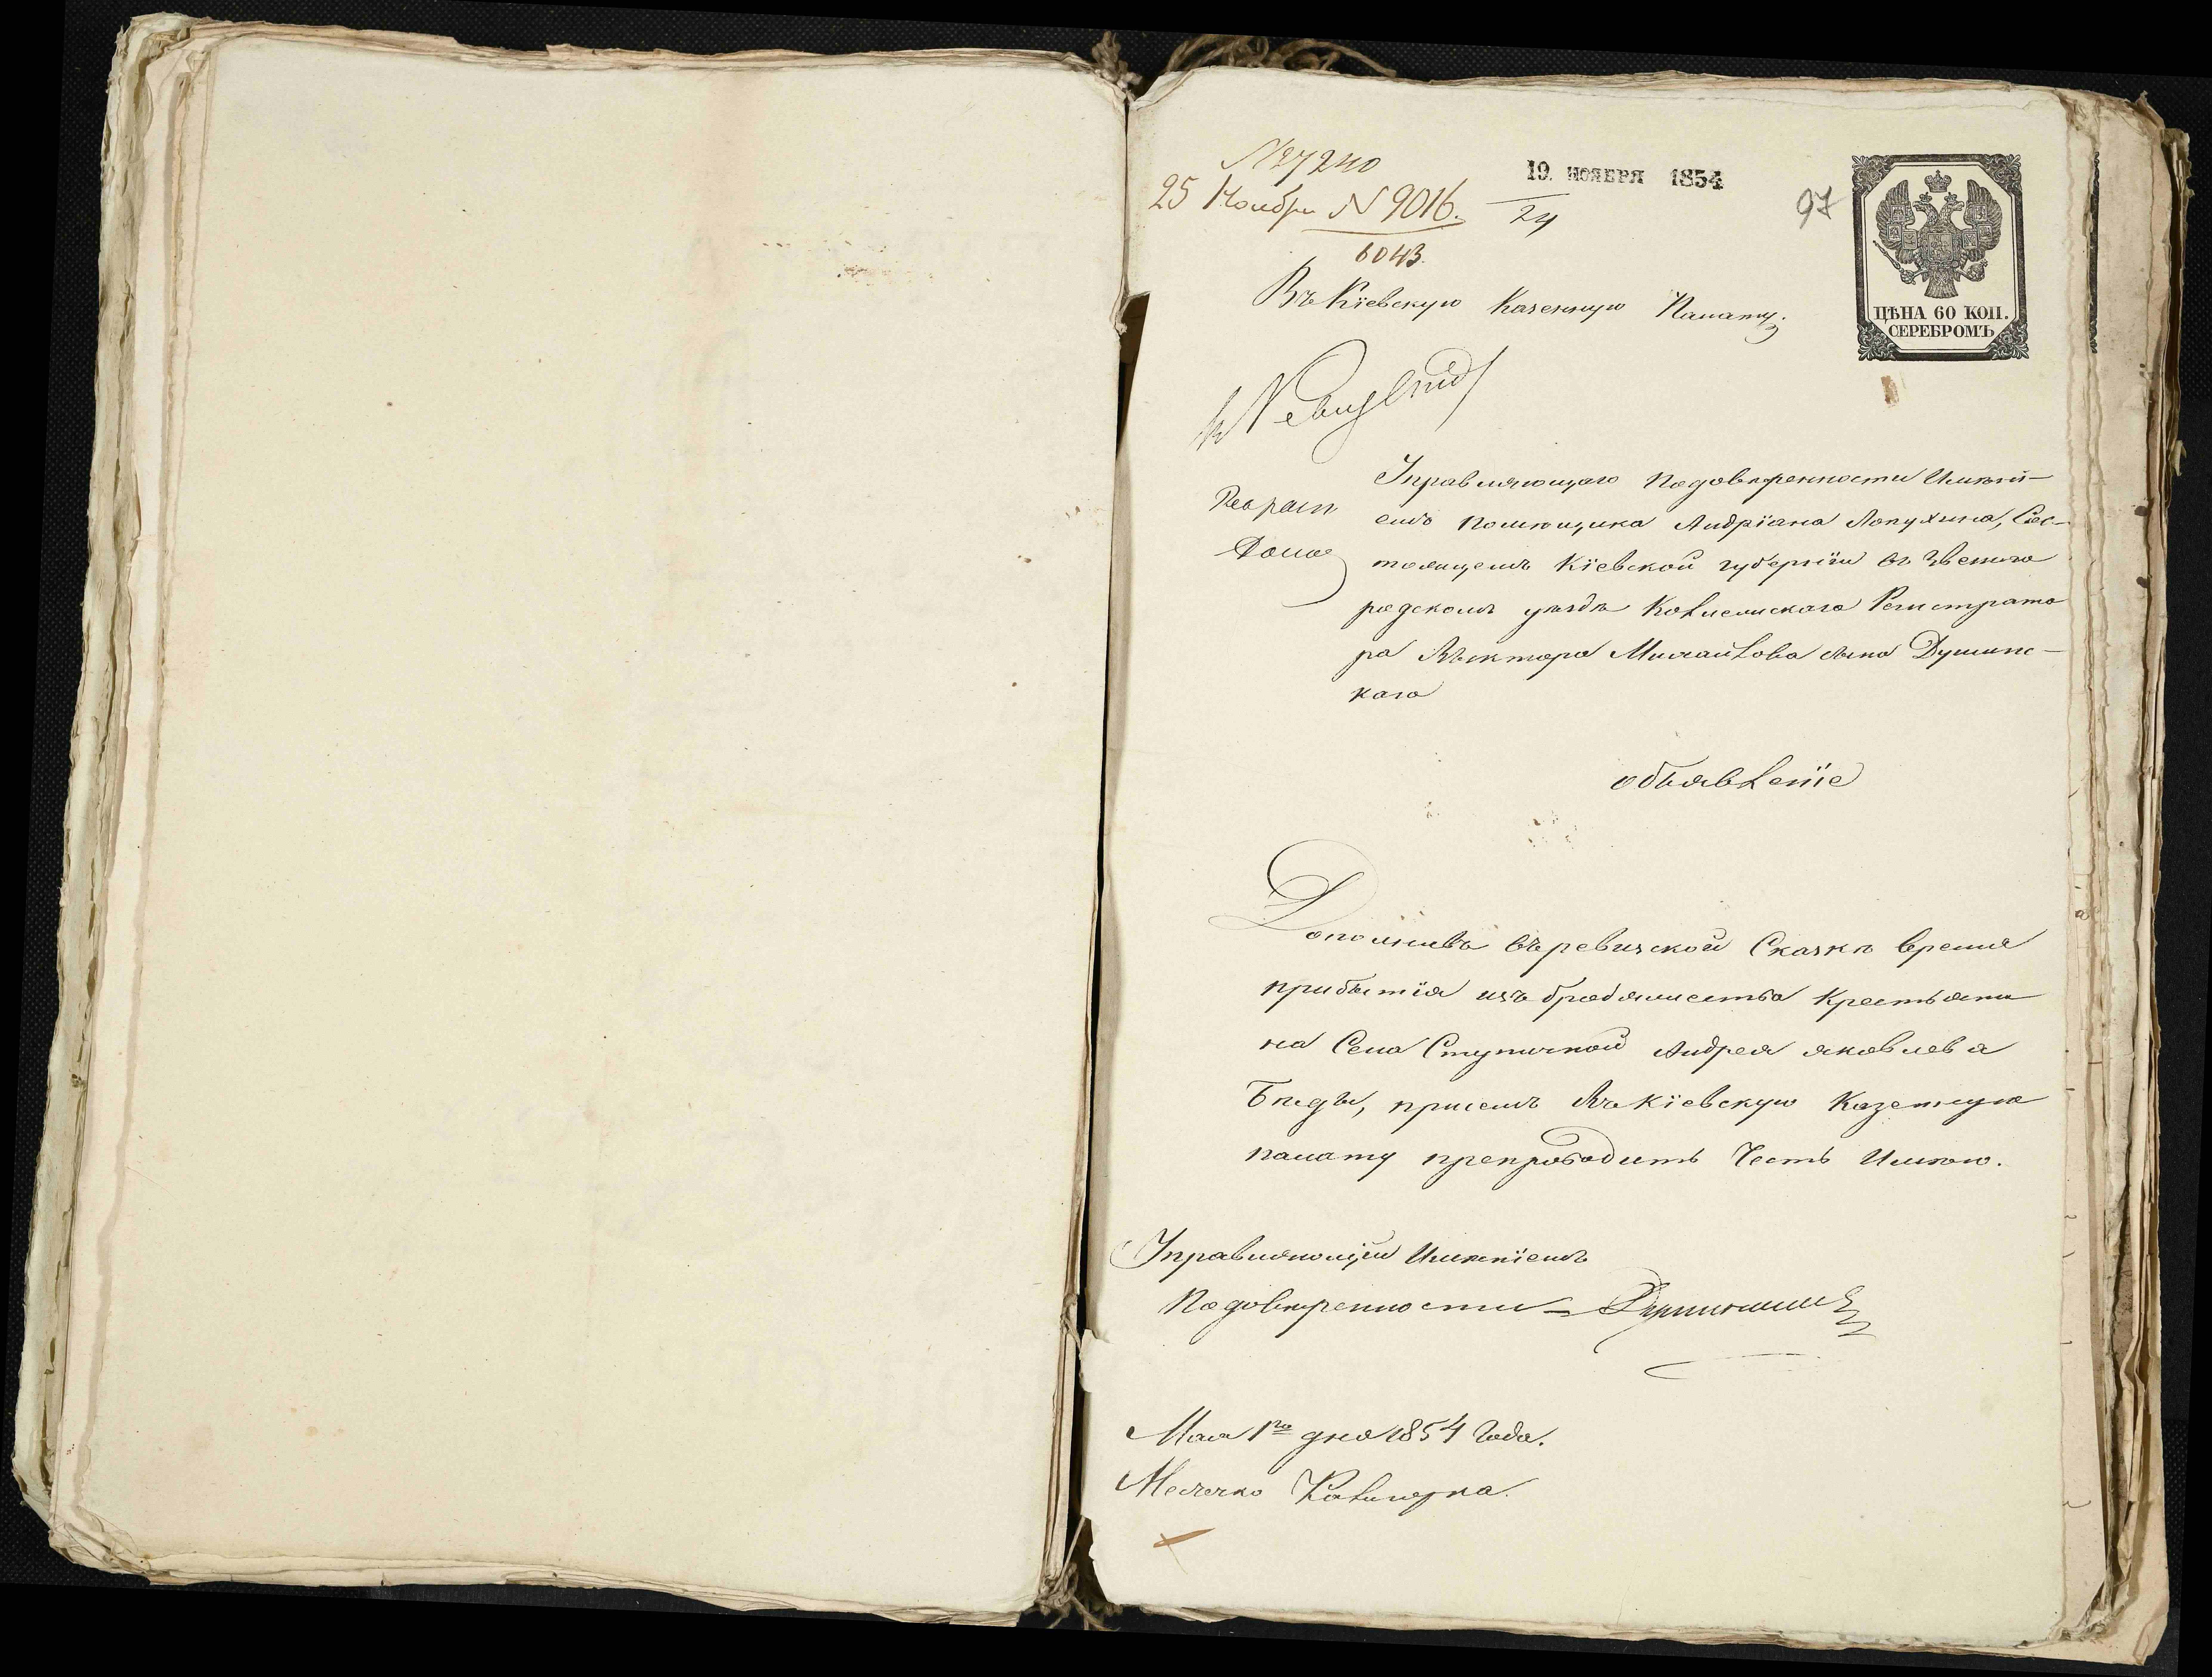 № 27240
19. НОЯБРЯ 1854
25 Ноября № 9016.
24
97
6043
ЦѢНА 60 КОП.
СЕРЕБРОМЪ
Въ Кіевскую Казенную Палату.
Управляющаго Подовѣренности Имѣні-
емъ помѣщика Андріана Лопухина, Сос-
тоящемъ Кіевской губерніи въ Звениго
родскомъ уѣздѣ Колежскаго Регистрато
ра Виктора Михайлова сына Душинс-
каго
объявленіе
Дополнивъ въ ревизской Сказкѣ время
прибытія изъ бродяжества Крестьяни
на Села Ступичной Андрея яковлева
Бѣды, присемъ Въ Кіевскую Казенную
палату препроводить Честь Имѣю.
Управляющій Имѣніемъ
Подовѣренности – Душинскій
Мая 1го дня 1854 Года.
Местечко Калигорка.